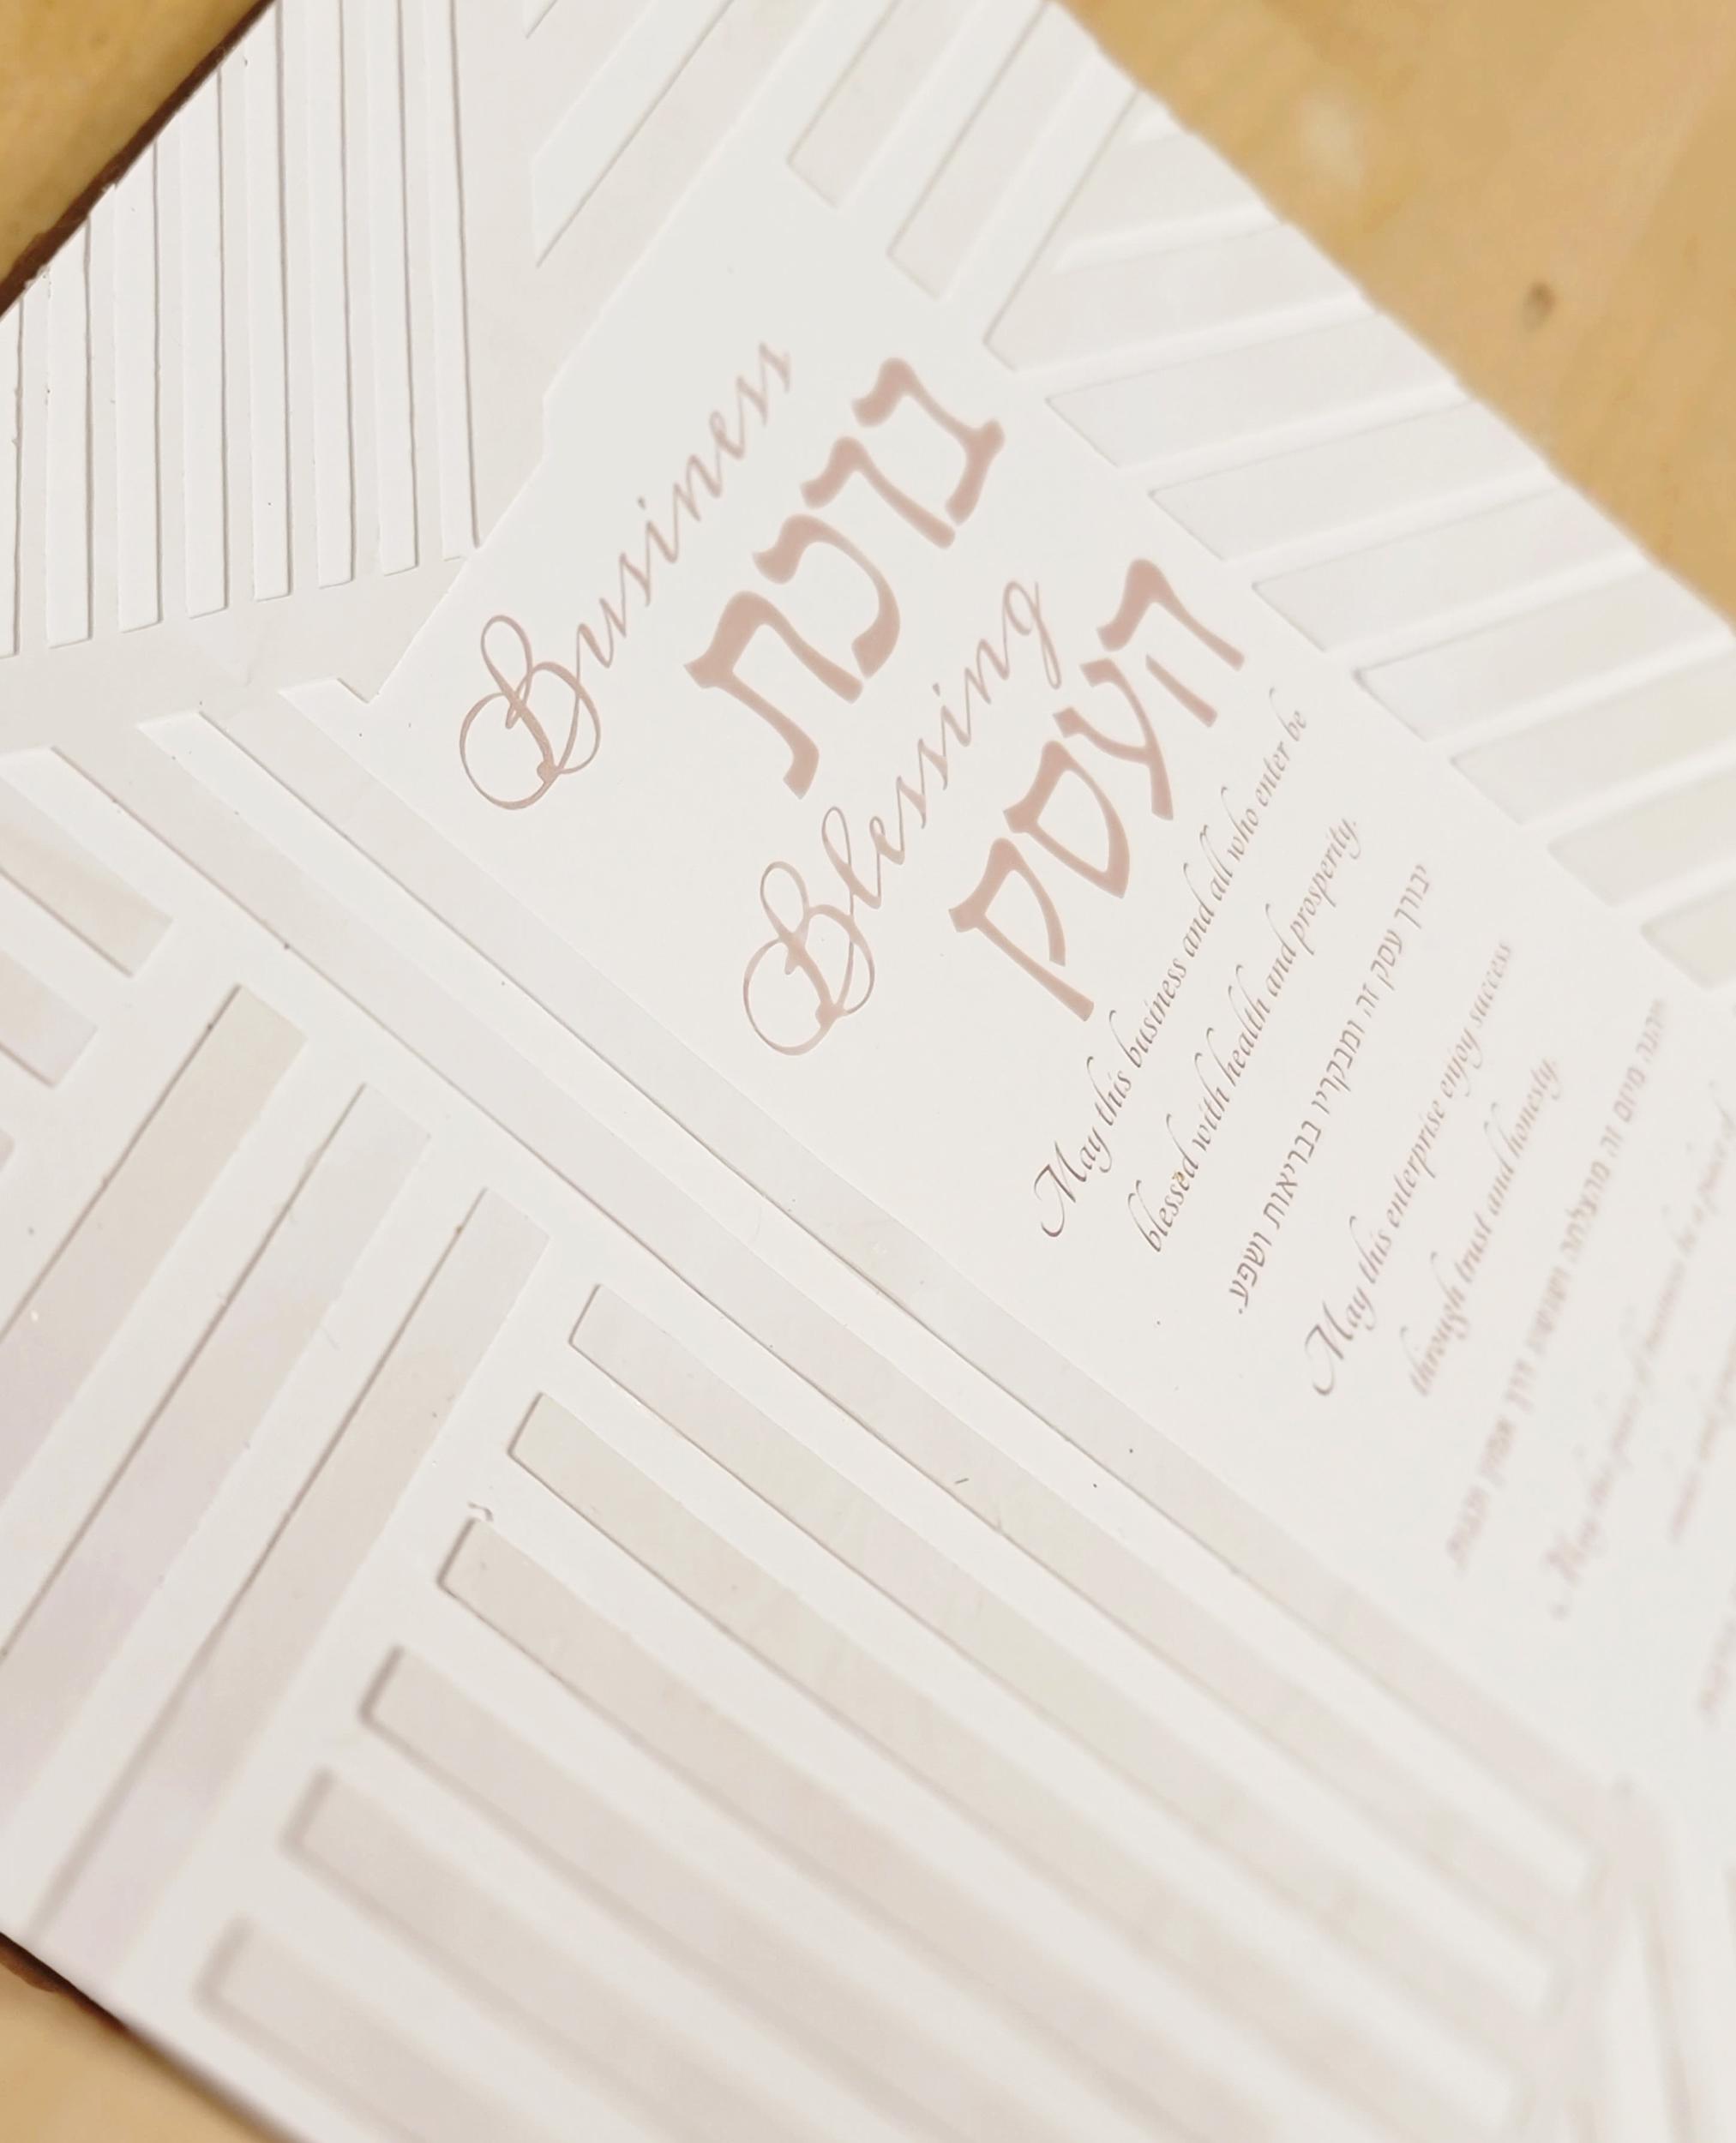 Business
ברכת
Blessing
העסק
May this business and all who enter be
blessed with health and prosperity.
יבורך עסק זה ומבקריו בבריאות ושפע.
May this enterprise enjoy success
through trust and honesty.
מיזם זה מהצלחה דרך אמון
May this place of business be a place of